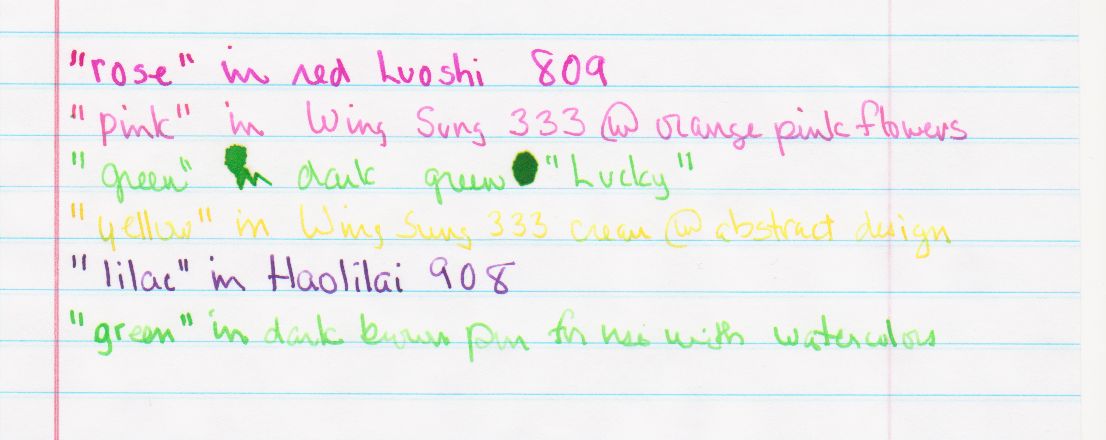 "rose" in red Luoshi 809
"pink" in Wing Sung 333 @ orange pink flowers
"green" in dark green "Lucky"
"yellow" in Wing Sung 333 cream @ abstract design
"lilac" in Haolilai 908
"green" in dark brown pen for use with watercolors